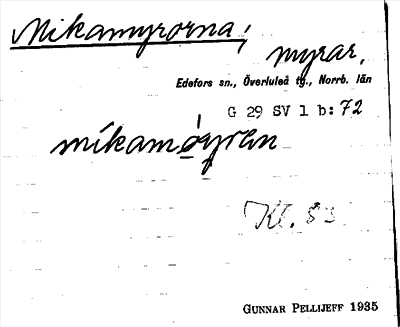 Mikamyrorna;
myrar.
Edefors sn., Överluleå tg., Norrb. län
G 29 SV 1 b: 72
mikamöyren
Kl. 83
GUNNAR PELLIJEFF 1935